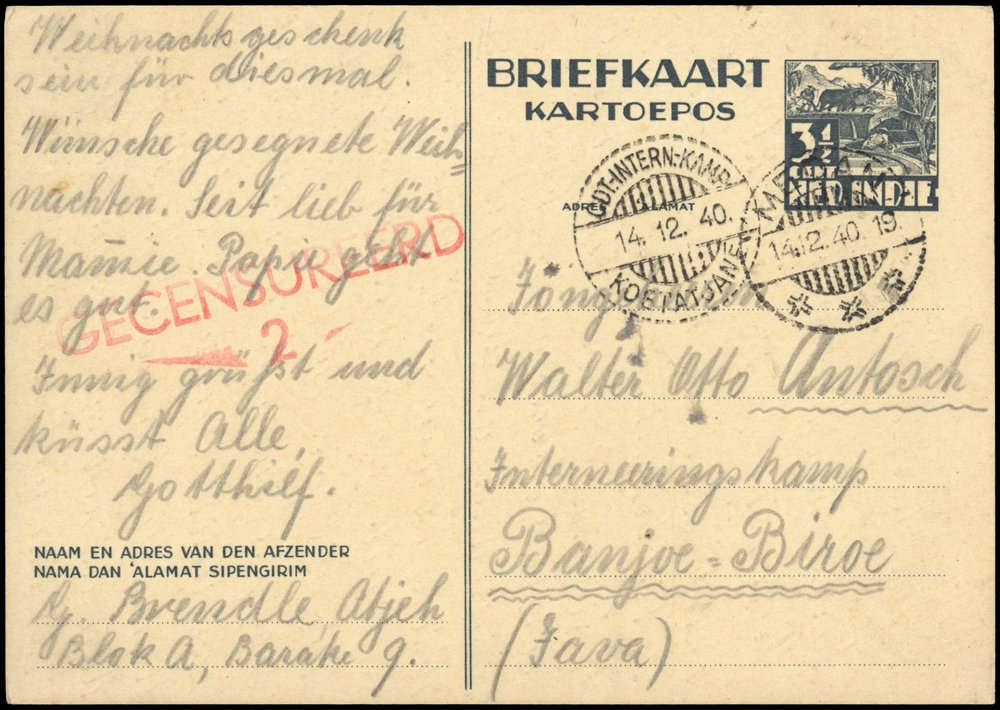 Weihnachtsgeschenk
sein für diesmal.
Wünsche gesegnete Weih-
nachten. Seit lieb für
Mamie. Papie geht
es gut.
Innig grüßt und
küsst Alle,
Gotthilf.
GECENSUREERD
2
NAAM EN ADRES VAN DEN AFZENDER
NAMA DAN ʿALAMAT SIPENGIRIM
G. Brendle Atjeh
Blok A, Barake 9.
BRIEFKAART
KARTOEPOS
3½
CENT
NED. INDIE
ADRES ALAMAT
INTERN.-KAMP
14.12.40.
KOETATJANE
14.12.40.19.
Walter Otto Antosch
Interneeringskamp
Banjoe-Biroe
(Java)